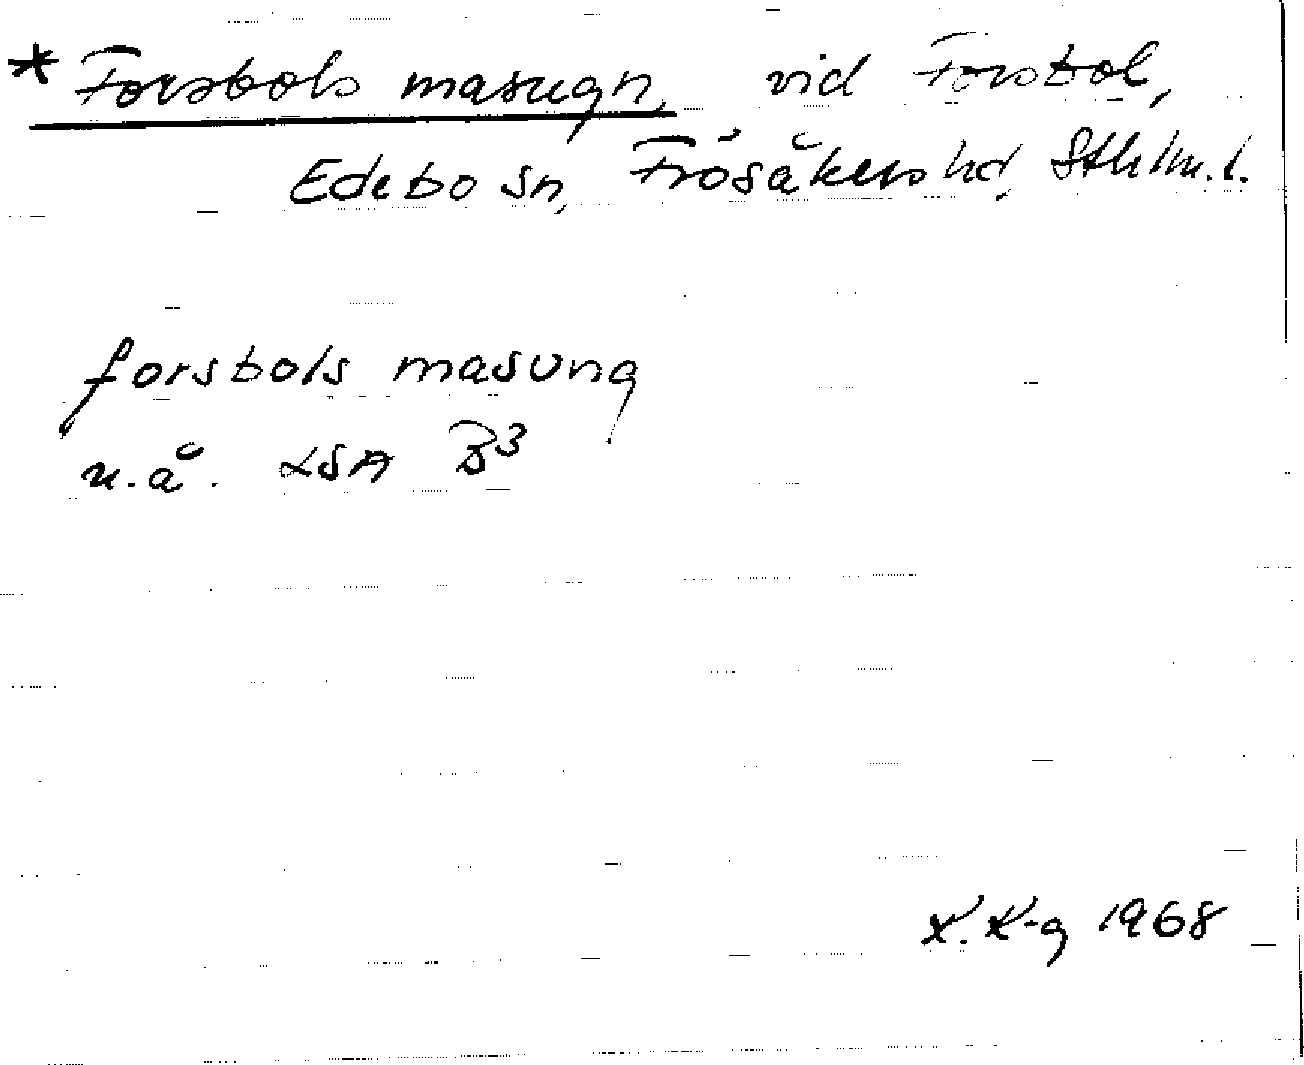 * Forsbols masugn, vid Forsbol,
Edebo sn, Frösåkers hd, Sthlm. l.
forsbols masung
u.å. LSA B3
K. K-g 1968